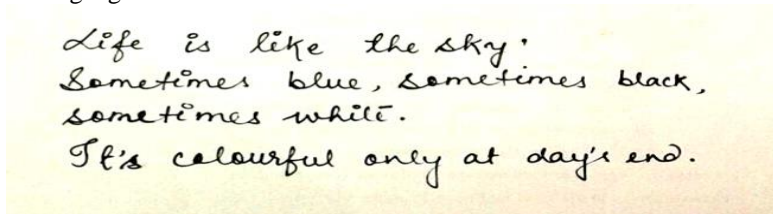 Life is like the sky.
Sometimes blue, sometimes black,
sometimes white.
It's colourful only at day's end.